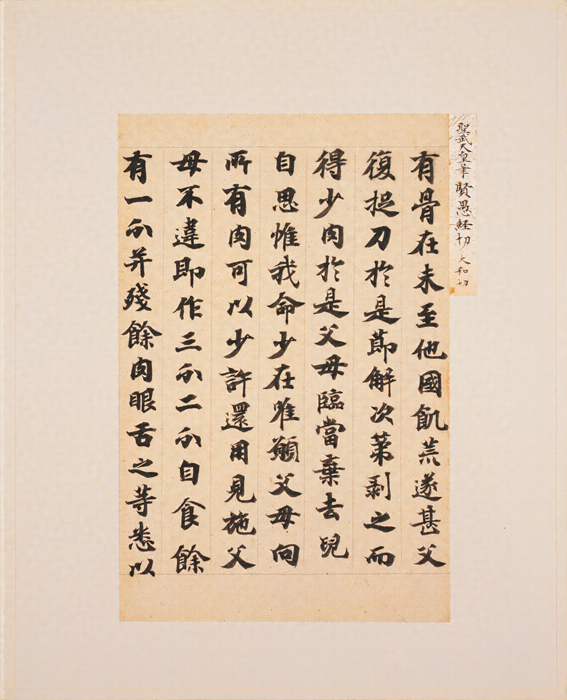 聖武天皇筆 賢愚経切 大和切
有骨在未至他國飢荒遂甚父
復捉刀於是節解次第剥之而
得少肉於是父母臨當棄去兒
自思惟我命少在唯願父母向
所有肉可以少許還用見施父
母不違即作三分二分自食餘
有一分并殘餘肉眼舌之等悉以